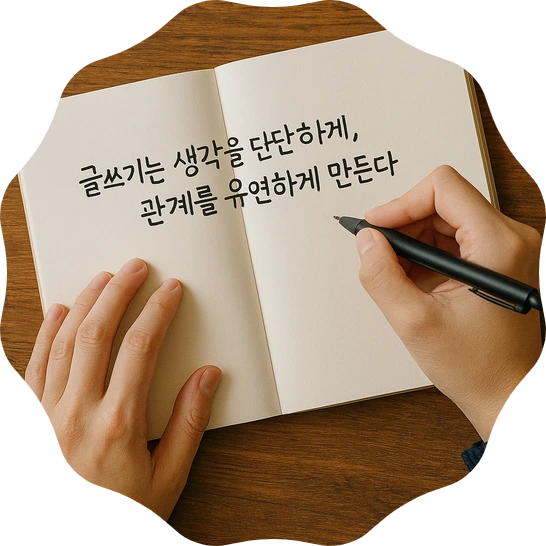 글쓰기는 생각을 단단하게,
관계를 유연하게 만든다